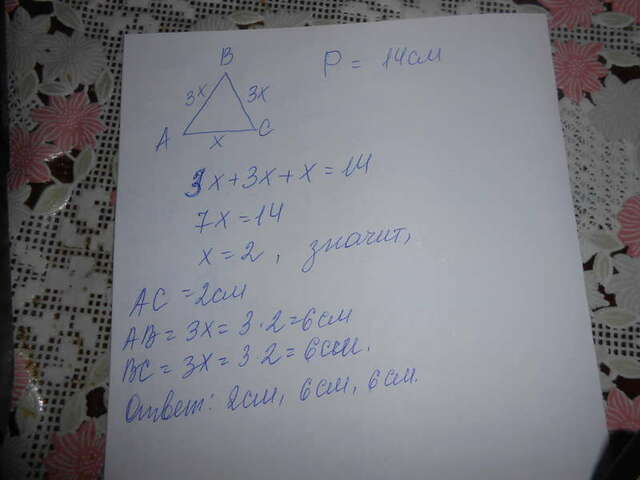 B
P = 14см
3x
3x
A
C
x
3x+3x+x=14
7x=14
x=2, значит,
AC=2см
AB=3x=3·2=6см
BC=3x=3·2=6см.
Ответ: 2см, 6см, 6см.